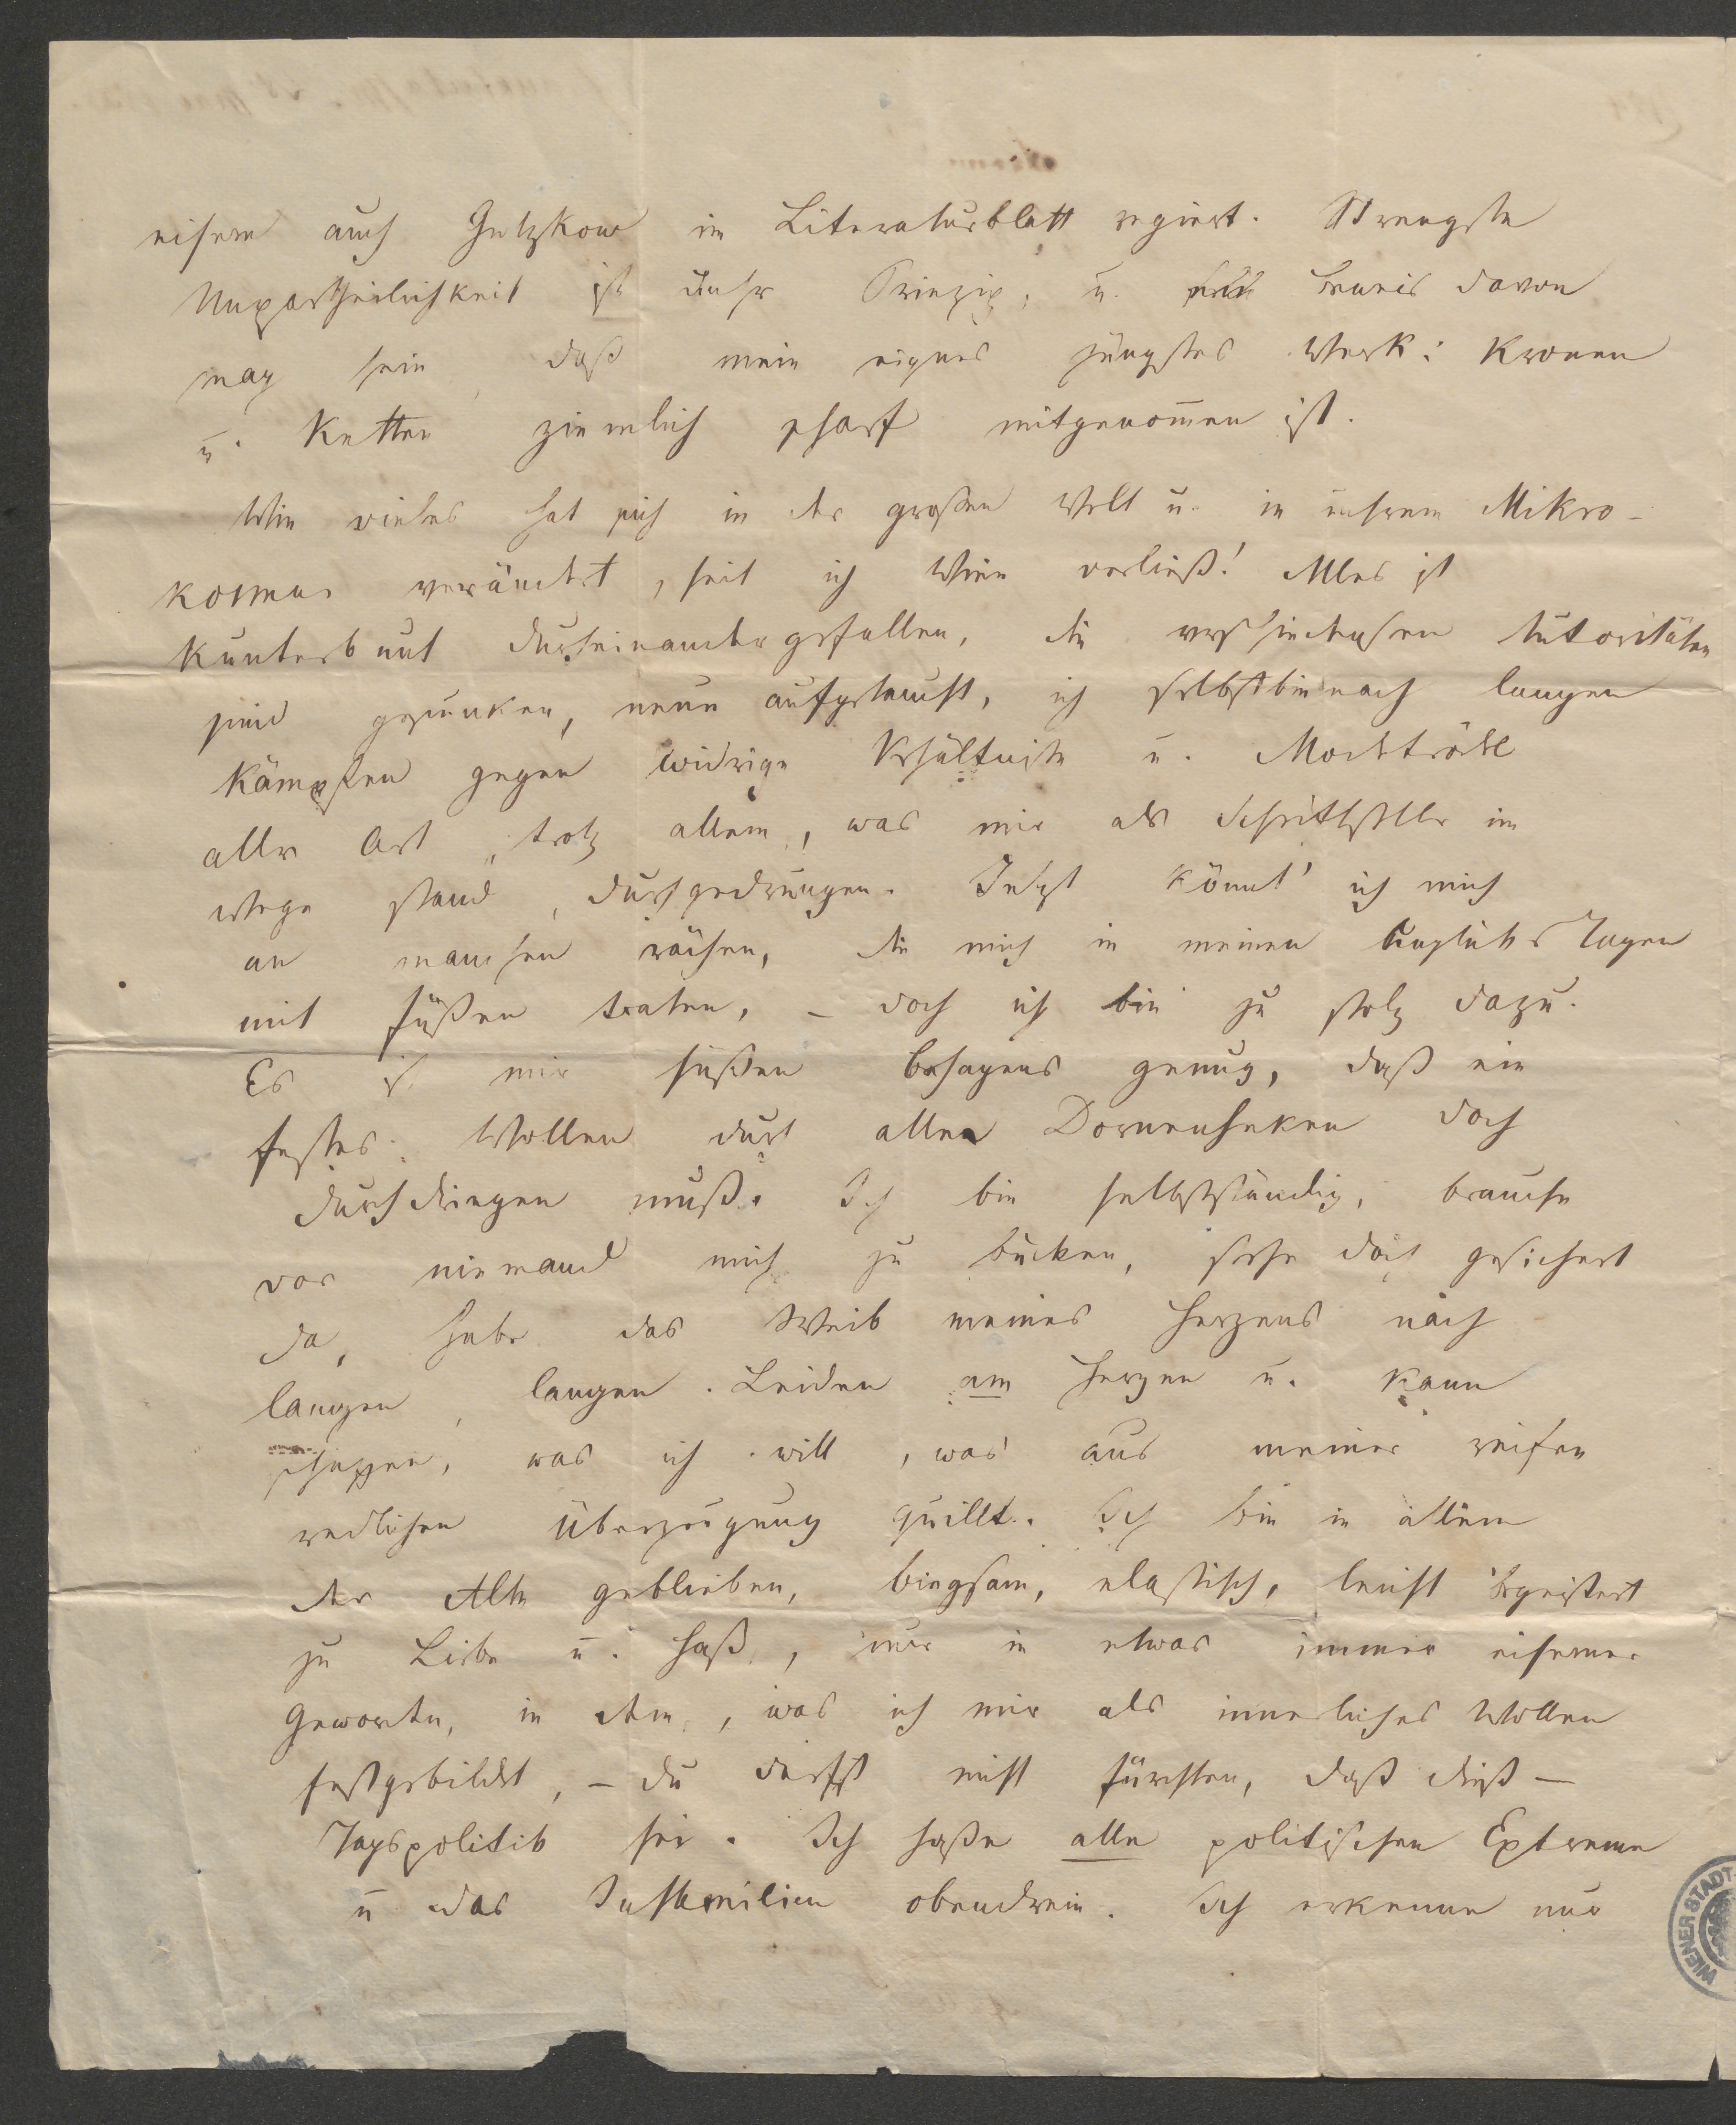 eisern auch Gutzkow im Literaturblatt regiert. Strengste
Unpartheilichkeit ist unser Prinzip, u. Beweis davon
mag sein, daß mein eignes jüngstes Werk: Kronen
u. Ketten ziemlich scharf mitgenom̅en ist.
Wie vieles hat sich in der großen Welt u. in unsrem Mikro-
kosmus verändert, seit ich Wien verließ! Alles ist
kunterbunt durcheinandergefallen, die verschiedensten Autoritäten
sind gesunken, neue aufgetaucht, ich selbst bin nach langen
Kämpfen gegen widrige Verhältniße u.
aller Art, trotz allem, was mir als Schriftsteller im
Wege stand, durchgedrungen. Jetzt könnt' ich mich
an manchen rächen, die mich in meinen Unglücks Tagen
mit Füßen traten, – doch ich bin zu stolz dazu.
Es ist mir süßen Behagens genug, daß ein
festes Wollen durch alle Dornenheken doch
durchdringen muß. Ich bin selbstständig, brauche
vor niemand mich zu bücken, stehe doch gesichert
da, habe das Weib meines Herzens nach
langen, langen Leiden am Herzen u. kann
schaffen, was ich will, was aus meiner reifen
redlichen Überzeugung quillt. Ich bin in allem
der Alte geblieben, biegsam, elastisch, leicht begeistert
zu Liebe u. Haß, nur in etwas immer eiserner
geworden, in dem, was ich mir als innerliches Wollen
festgebildet, – du darfst nicht fürchten, daß dieß –
Tagspolitik sei. Ich haße alle politischen Extreme
u das Justemilieu obendrein. Ich erkenne nur
WIENER STADT-